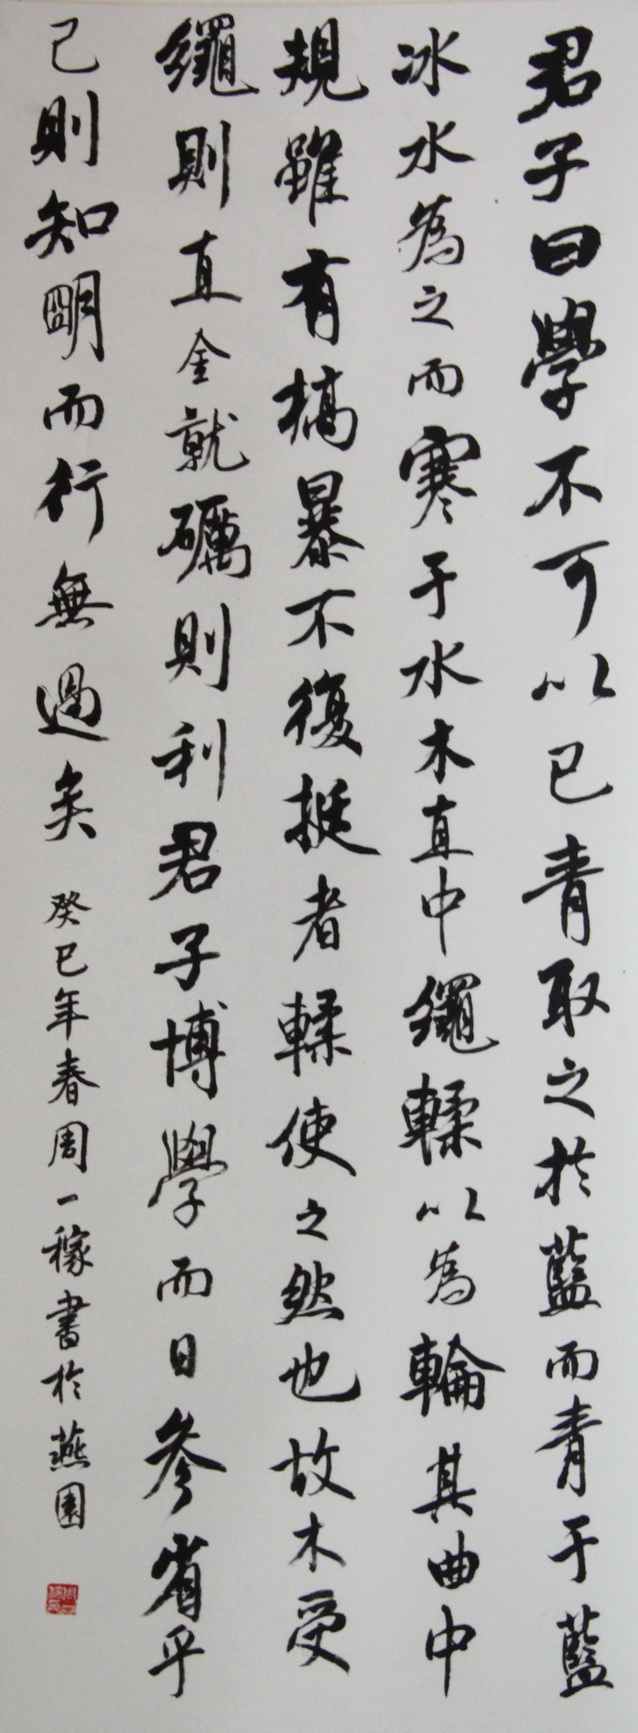 君子曰學不可以已青取之於藍而青于藍
冰水為之而寒于水木直中繩輮以為輪其曲中
規雖有槁暴不復挺者輮使之然也故木受
繩則直金就礪則利君子博學而日參省乎
己則知明而行無過矣 癸巳年春周一稼書於燕園